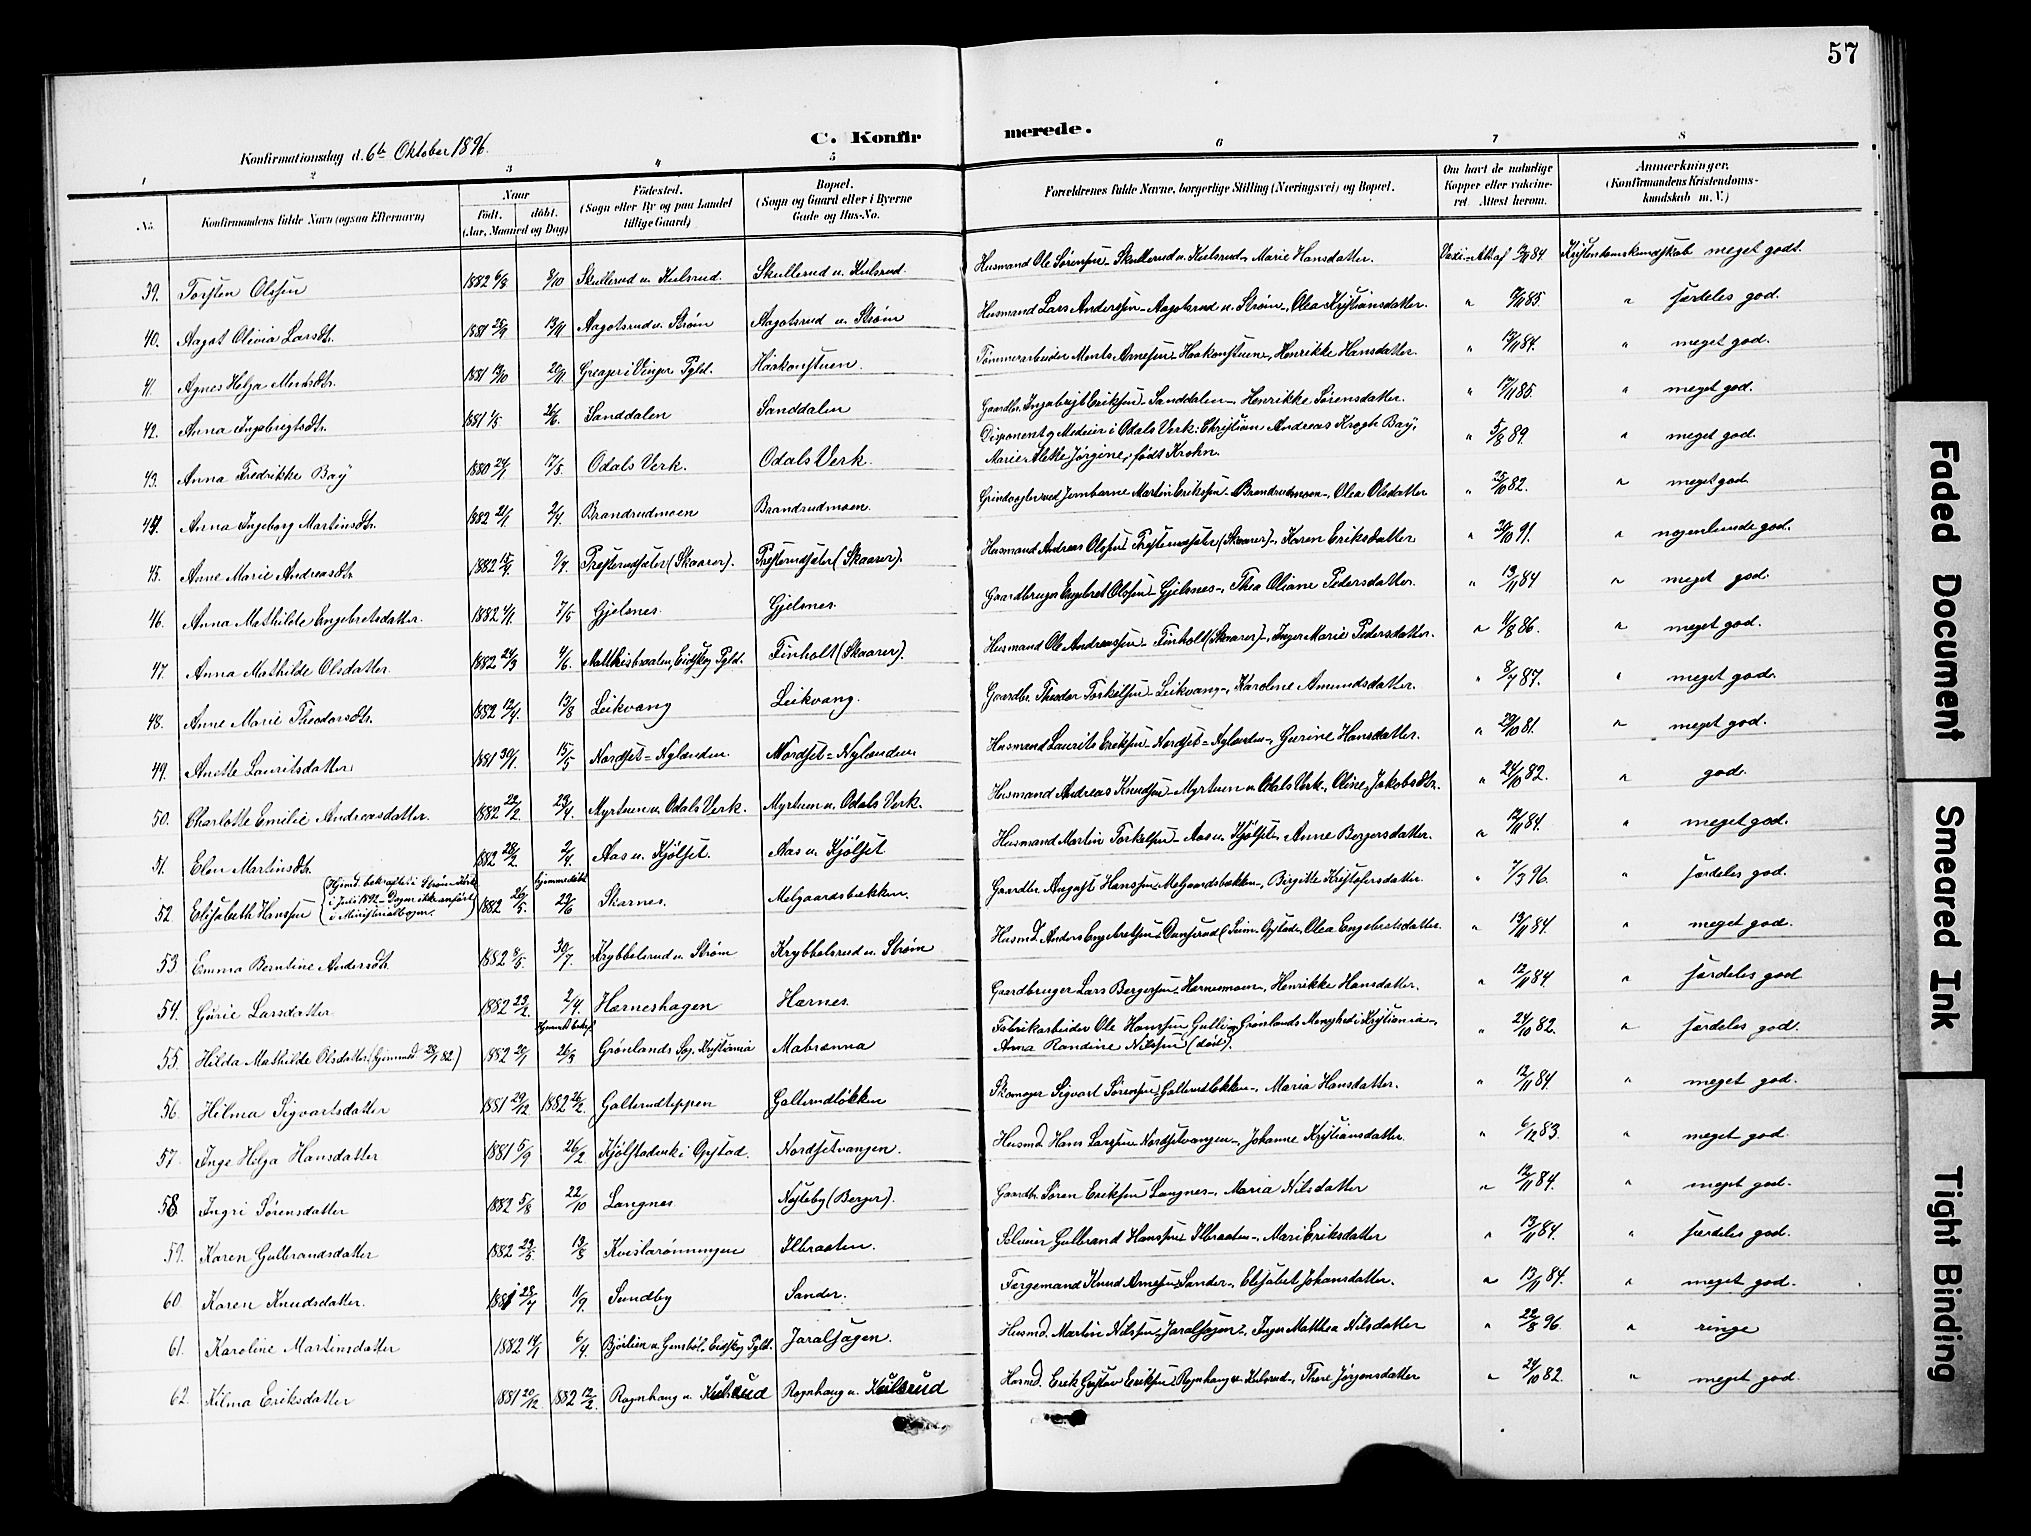 57
C. Konfirmerede.
Konfirmationsdag d. 6te Oktober 1896.
1 2 3 4 5 6 7 8
No. Konfirmandens fulde Navn (ogsaa Efternavn) Naar født. døbt. (Aar, Maaned og Dag) Fødested. (Sogn eller By og paa Landet tillige Gaard) Bopæl. (Sogn og Gaard eller i Byerne Gade og Hus-No. Forældrenes fulde Navne, borgerlige Stilling (Næringsvei) og Bopæl. Om havt de naturlige Kopper eller vakcineret. Attest herom. Anmærkninger. (Konfirmandens Kristendomskundskab m. V.)
39. Torsten Olssen 1882 6/8 8/10 Skullerud u. Kulsrud. Skullerud u. Kulsrud. Husmand Ole Sørensen - Skullerud u. Kulsrud -, Marie Hansdatter. 84 Kristendomskundskab meget godt.
40. Aagot Olivia Larsdtr. 1881 25/9 13/11 Aagotsrud u. Strøm Aagotsrud u. Strøm Husmand Lars Anderssen - Aagotsrud u. Strøm -, Olea Kristiansdatter. " 85 " særdeles god.
41. Agnes Helga Mentsdtr. 1881 Vinger Pgld. Haakonstuen. Tømmerarbeider Ments Arnesen - Haakonstuen -, Henrikke Hansdatter. " 12/11 84. " meget god.
42. Anna Ingebrigtsdtr. 1881 26/6 Sanddalen Sanddalen Gaardbr. Ingebrigt Eriksen - Sanddalen -, Henrikke Sørensdatter. " 17/11 85. " meget god.
43. Anna Fredrikke Baÿ 1880 24/1 17/5 Odals Verk. Odals Verk. Disponent og Medeier i Odals Verk: Christian Andreas Krogh Baÿ,
Marie Alette Jørgine, født Krohn. " 5/8 89. " meget god.
44. Anna Ingeborg Martinsdtr. 1882 21/1 2/4 Brandrudmoen Brandrudmoen. Grindvogter ved Jernbarne Martin Erikssen - Brandrudmoen -, Olea Olsdatter " 25/10 82. " meget god.
45. Anne Marie Andreasdtr 1882 9/4 Presterudsæter (Skaarer). Presterudsæter (Skaarer). Husmand Andreas Olssen Presterudsæter (Skaarer) -, Karen Eriksdatter " 20/10 91. " nogenlunde god.
46. Anna Mathilde Engebretsdatter. 1882 4/1 7/5 Gjelsnes. Gjelsnes. Gaardbruger Engebret Olssen - Gjelsnes -, Thea Oliane Pedersdatter. " 13/11 84 " meget god.
47. Anna Mathilde Olsdatter 1882 24/3 4/6 Matthisbraaten, Eidskog Pgld. Finholt (Skaarer). Husmand Ole Andreassen - Finholt (Skaarer) -, Inger Marie Pedersdatter. " 4/8 86. " meget god.
48. Anne Marie Theodorsdtr. 1882 12/4 13/8 Leikvang Leikvang. Gaardbr. Theodor Torkelsen - Leikvang -, Karoline Amundsdatter. " 8/7 87. " meget god.
49. Anette Lauritsdatter 1881 30/1. 15/5 Nordset = Nylænden Nordset = Nylænden Husmand Laurits Eriksen - Nordset = Nylænden -, Gurine Hansdatter. " 29/10 81. " meget god.
50. Charlotte Emilie Andreasdatter. 1882 22/2 23/4 Myrtuen u. Odals Verk. Myrtuen u. Odals Verk. Husmand Andreas Knudsen - Myrtuen u. Odals Verk -, Oline Jakobsdtr. " 24/10 82. " god.
51. Elen Martinsdtr. 1882 28/2 2/4 Aas u. Kjølset. Aas u. Kjølset Husmand Martin Torkelsen - Aas u. Kjølset - Anne Bergersdatter. " 12/11 84. " meget god.
52. Elisabeth Hanssen (Hjemd. bekræftet i Strøm Kirke i Juli 1892 - Dagen ikke anført i Ministerialbogen.) 1882 26/5. hjemmedøbt 29/6 Skarnes. Melgaardsbækken. Gaardbr. August Hanssen - Melgaardsbækken -, Birgitte Kristofersdatter. " 7/3 96. " særdeles god.
53. Emma Berntine Andersdtr. 1882 8/5. 30/7 Krybbelsrud u. Strøm Krybbelsrud u. Strøm Husmd. Anders Engebretsen - Opstad -, Olea Engebretsdatter. " 13/11 84. " meget god.
54. Gurie Larsdatter 1882 23/2. 2/4 Herneshagen Hernes. Gaardbruger Lars Bergersen - Hernesmoen -, Henrikke Hansdatter. " 12/11 84. " særdeles god
55. Hilda Mathilde Olsdatter (hjemmed. 28/1 82) 1882 hjemmed. bekr. 26/3 Grønlands Sog. Kristiania Mabranna Fabrikarbeider Ole Hanssen Gulli - Grønlands Menighed i Kristiania -,
Anna Randine Nilssen (død). " 24/10 82. " særdeles god.
56. Hilma Sigvartsdatter 1881 29/12 1882 26/2. Galterudteppen Galterudløkken Skomager Sigvart Sørensen - Galterudløkken -, Maria Hansdatter. " 12/11 84. " meget god.
57. Inge Helga Hansdatter 1881 5/9 26/2 Kjølstadenk i Opstad. Nordsetvangen. Husmd. Hans Larssen - Nordsetvangen -, Johanne Kristiansdatter. " 6/12 83. " meget god.
58. Ingri Sørensdatter 1882 5/8 22/10 Langnes Nøsteby (Berger). Gaardbr. Søren Eriksen Langnes -, Maria Nilsdatter " 12/11 84. " meget god.
59. Karen Gulbrandsdatter 1882 29/5. 13/8 Kvislarønningen Ilbraaten. Selveier Gulbrand Hanssen Ilbraaten -, Mari Eriksdatter " 13/11 84. " særdeles god.
60 Karen Knudsdatter. 1881 23/4 11/9 Sundby Sander. Færgemand Knud Arnesen - Sander -, Elisabet Johansdatter. " 13/11 84. " meget god.
61. Karoline Martinsdatter 1882 14/1 6/4. Bjørlien u. Gunsbøl, Eidskog Pgld. Jaralsagen. Husmd. Martin Nilssen - Jaralsagen -, Inger Matthea Nilsdatter " 22/8 96. " ringe
62. Hilma Eriksdatter 1881 20/12 1882 12/2. Røgnhaug u. Kulsrud Røgnhaug u. Kulsrud Husmd. Erik Gustav Eriksen - Røgnhaug u. Kulsrud -, Thore Jørgensdatter " 24/10 82. " meget god.
Faded Document
Smeared Ink
Tight Binding